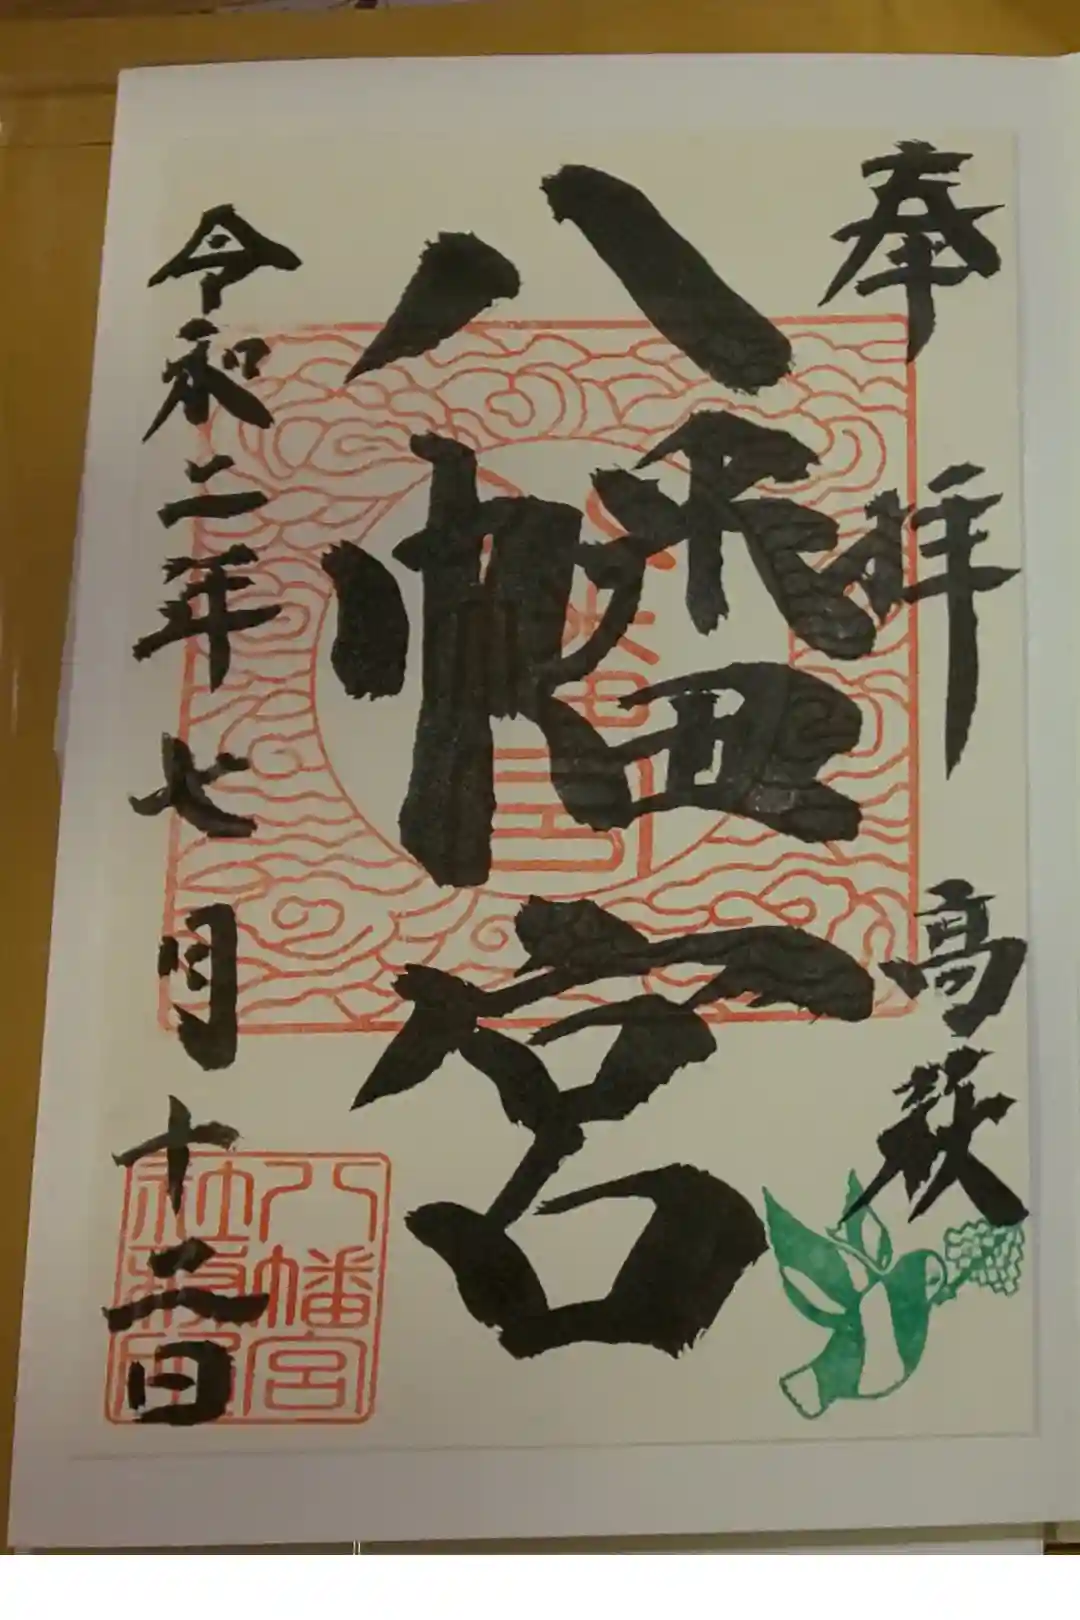 奉拝 高萩
八幡宮
令和二年七月十二日
八幡宮
社務